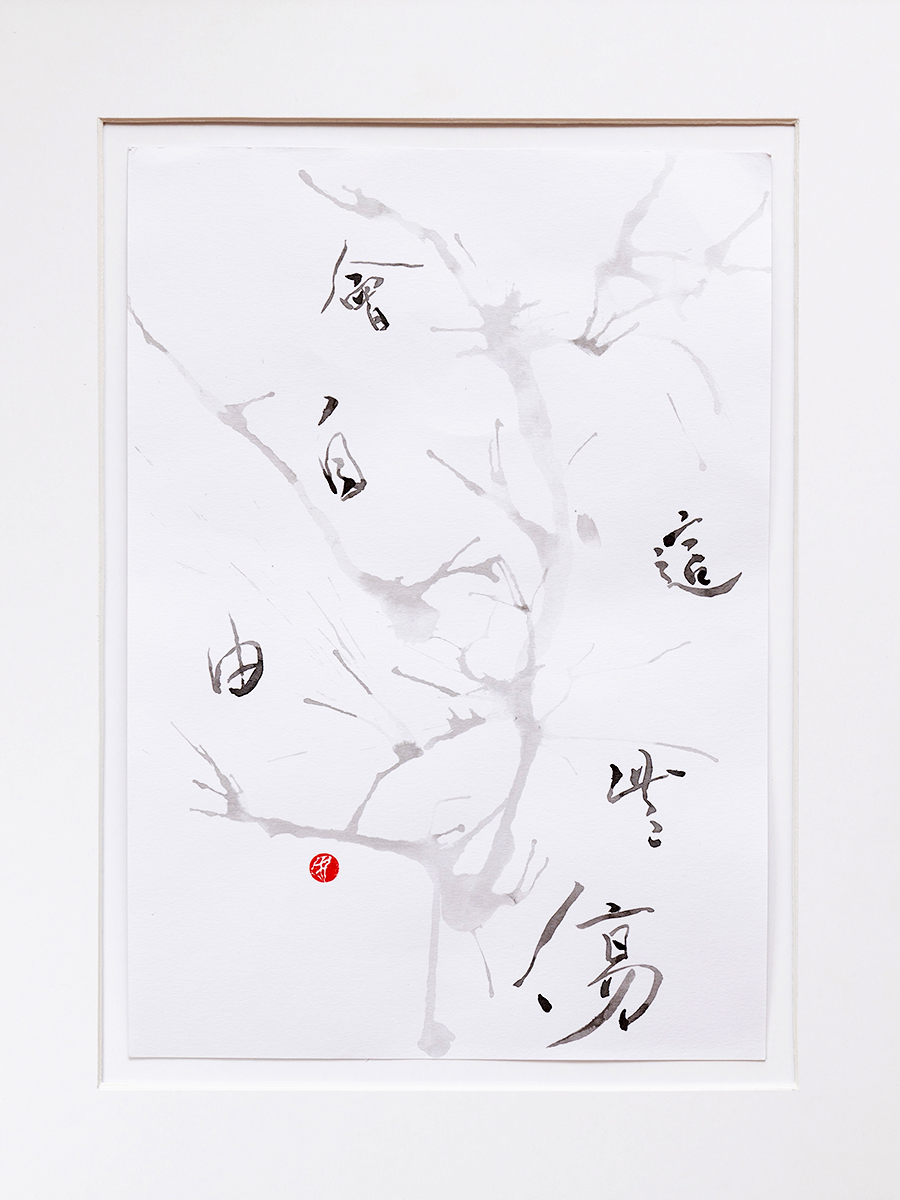 這些傷
會自由